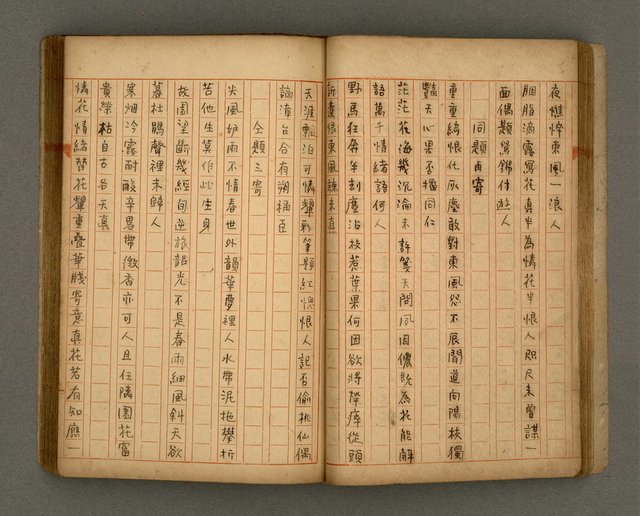 夜憔悴東風一浪人
胭脂滴露寫花真半為情花半恨人咫尺未曾謀一
面偶題箋錦付遊人
同題再寄
重重綺恨化灰塵敢對東風怨不辰聞道向陽枝獨
豔天心果否擅同仁
茫茫花海幾沉淪未許箋天問夙因儂既為花能解
語萬千情緒語何人
野馬狂奔午刮塵泊枝惹葉果何因欲將榮瘁從頭
訴畫恨東風誤未真
天涯飄泊可憐顰彩筆題紅愧恨人記否偷桃仙偶
謫漳台合有朔稱臣
仝題三寄
尖風妒雨不情春世外韻華夢裡人水帶泥拖攀折
苦他生莫作此生身
故園望斷幾經旬逆旅韶光不是春雨細風斜天欲
暮杜鵑聲裡未歸人
寒烟冷露耐酸辛畧帶微香亦可人且任隣園花富
貴榮枯自古各天真
情花情緒替花顰重疊華牋寄意真花若有知應一